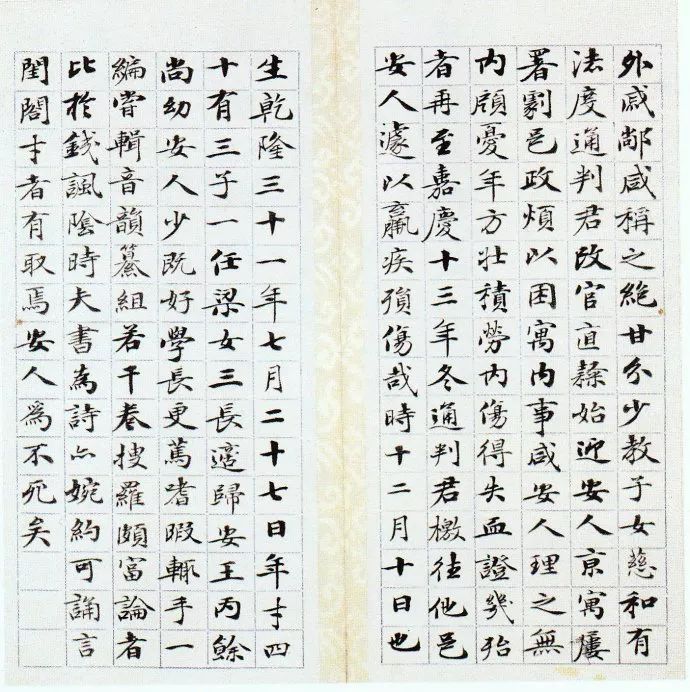 外戚咸稱之絕甘分少教子女慈和有
法度通判君改官直隸始迎安人京寓屢
署劇邑政煩以困寓内事咸安人理之無
内顧憂年方壯積勞内傷得失血證幾殆
者再至嘉慶十三年冬通判君檄往他邑
安人遽以羸疾殞傷哉時十二月十日也
生乾隆三十一年七月二十七日年才四
十有三子一任梁女三長適歸安王丙餘
尚幼安人少既好學長更篤嗜暇輒手一
編嘗輯音韻纂組若干卷搜羅頗富論者
比於錢諷陰時夫書為詩亦婉約可誦言
閨閣才者有取焉安人為不死矣